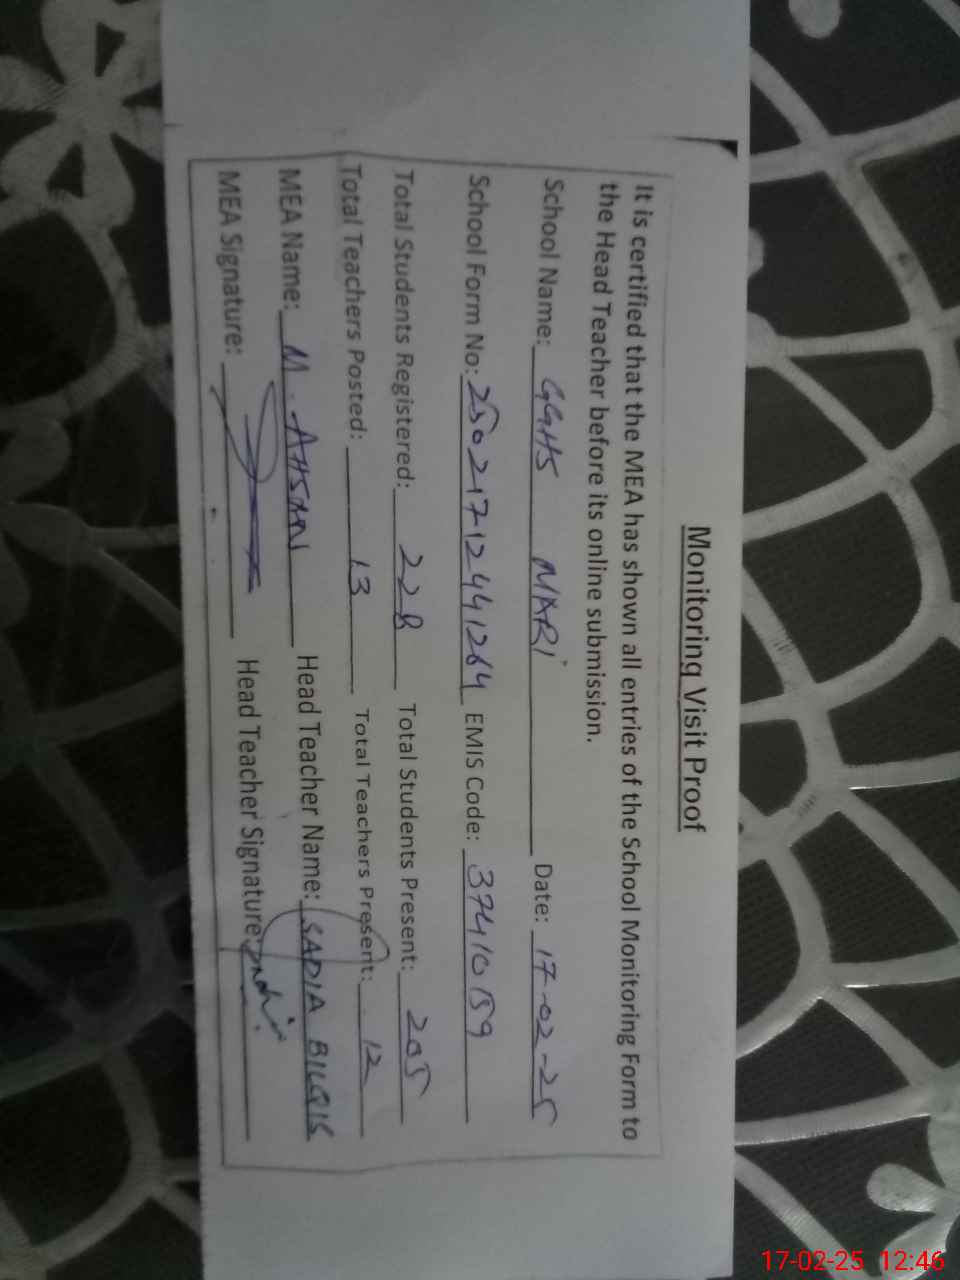 Monitoring Visit Proof
It is certified that the MEA has shown all entries of the School Monitoring Form to
the Head Teacher before its online submission.
School Name: GGHS MARI Date: 17-02-25
School Form No: 25021712441264 EMIS Code: 37410159
Total Students Registered: 228 Total Students Present: 205
Total Teachers Posted: 13 Total Teachers Present: 12
MEA Name: M. AHSAN Head Teacher Name: SADIA BILQIS
MEA Signature: Head Teacher Signature:
17-02-25 12:46